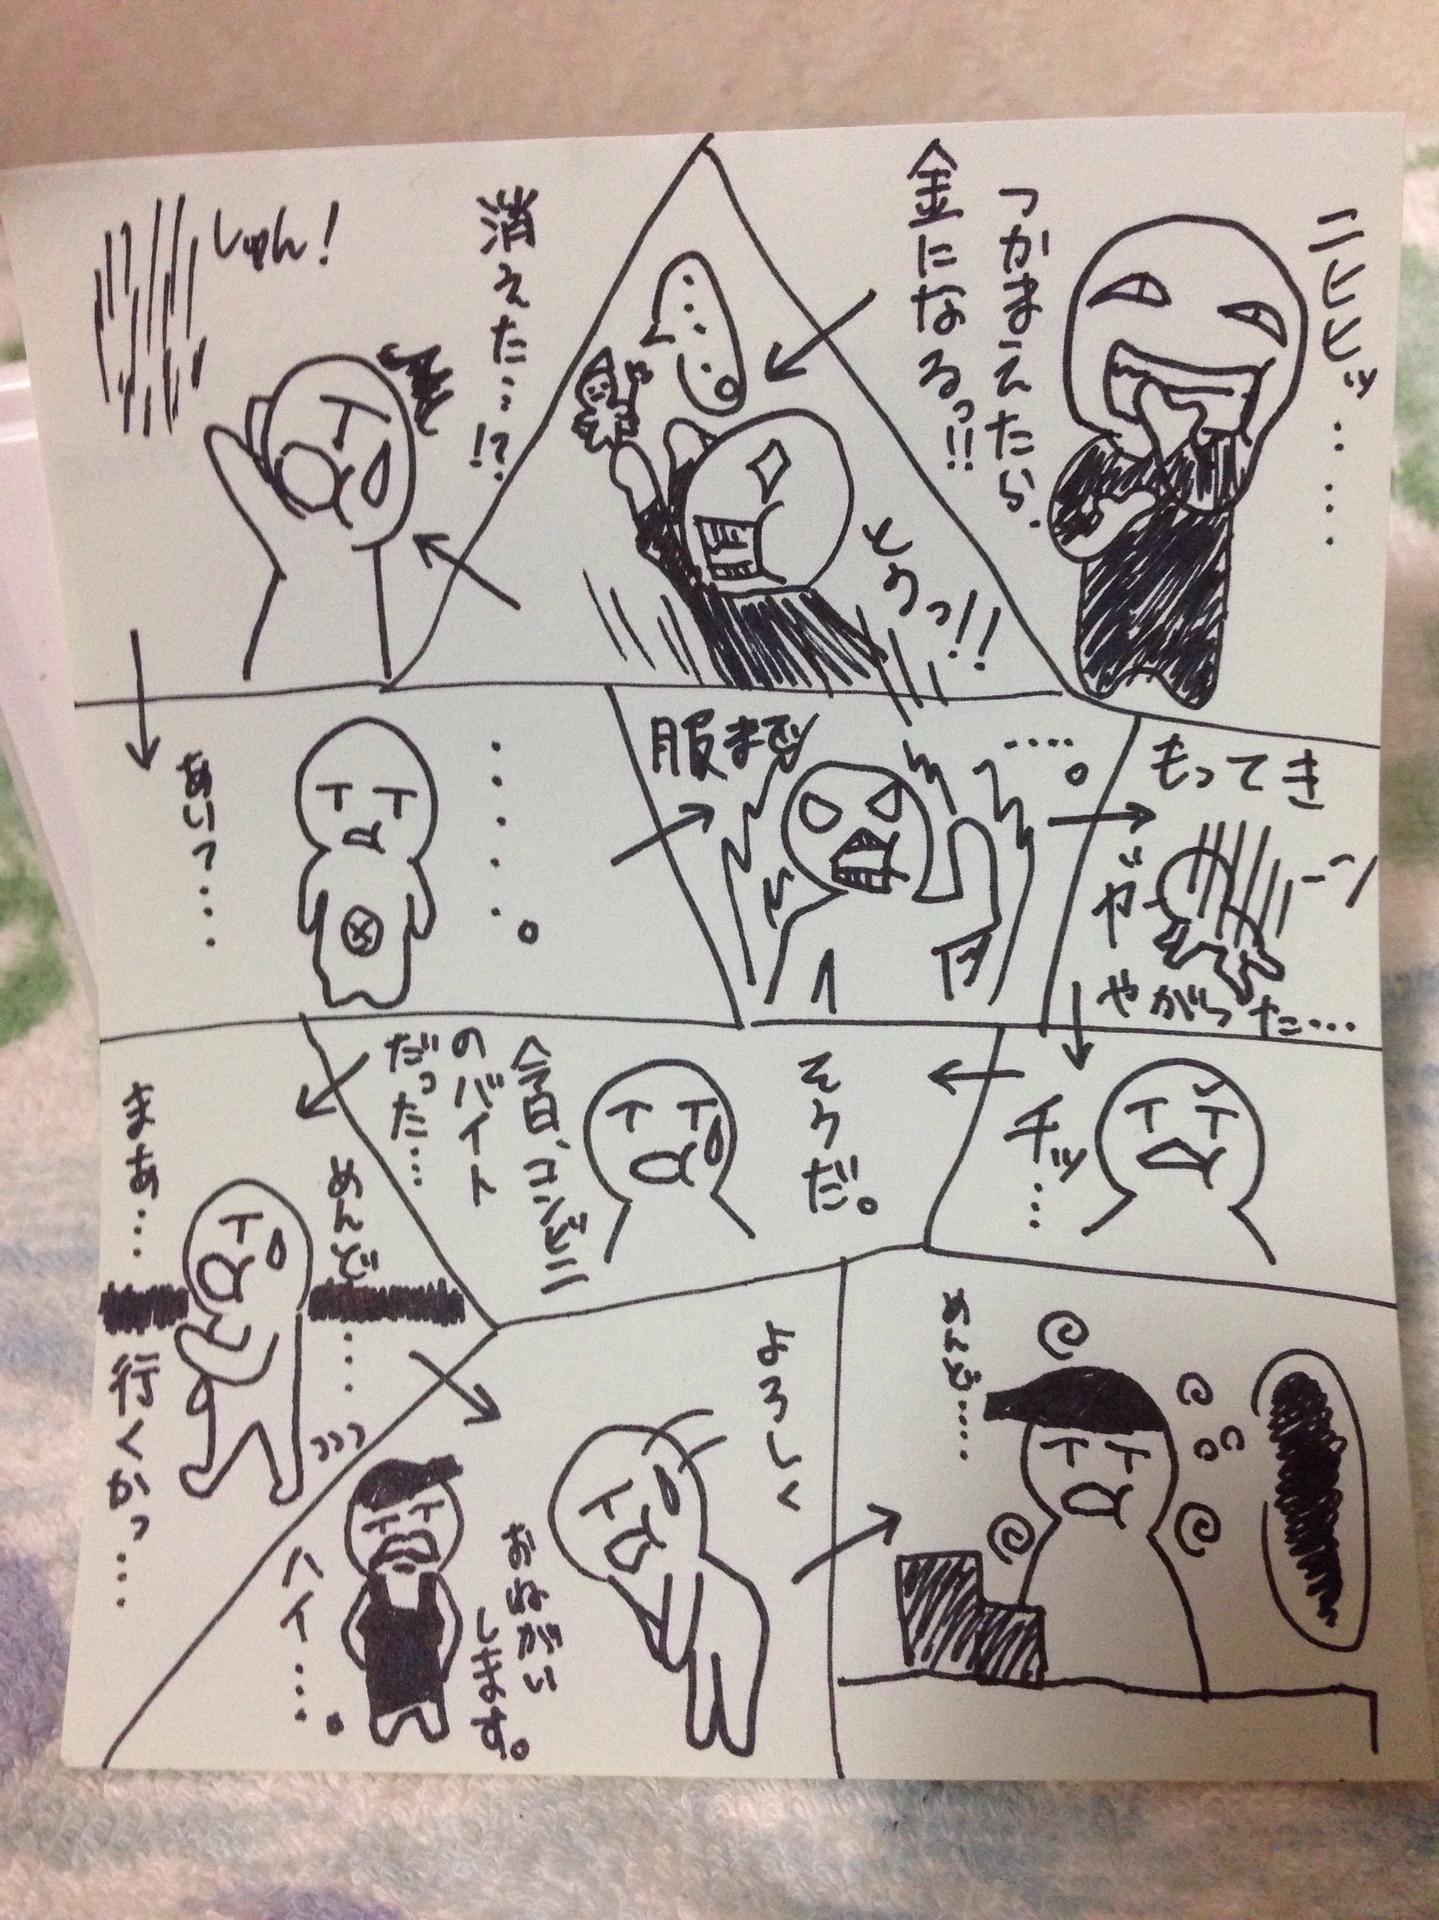 ニヒヒッ……
つかまえたら、
金になるっ!!
とうっ!!
……。
消えた…!?
しゅん!
……。
あいつ…
服まで
……。
もってき
やがった…
チッ…
そうだ。
今日、コンビニ
のバイト
だった…
めんど…
まぁ…
行くかっ…
よろしく
おねがい
します。
ハイ…。
めんど…